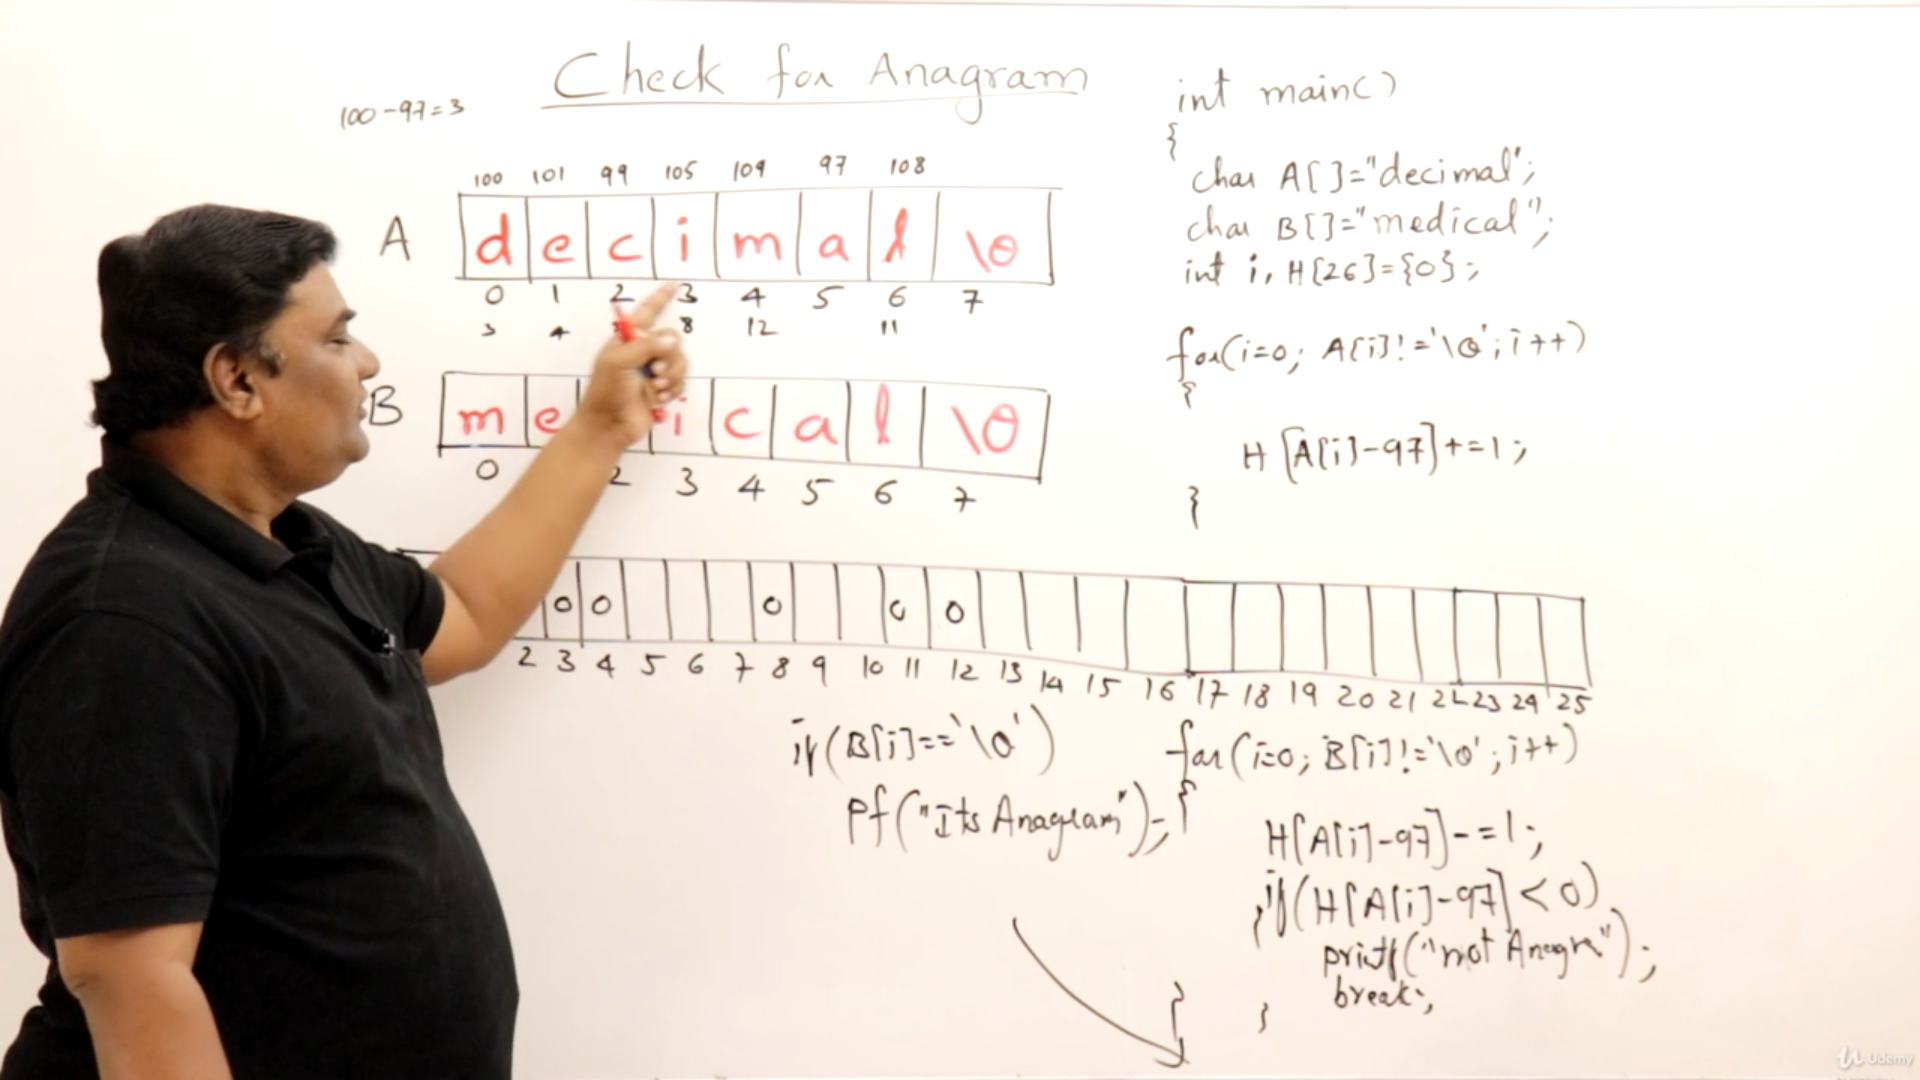 Check for Anagram
100-97=3
100 101 99 105 109 97 108
A d e c i m a l \0
0 1 2 3 4 5 6 7
3 4 8 12 11
B m e i c a l \0
0 2 3 4 5 6 7
0 0 0 0 0
2 3 4 5 6 7 8 9 10 11 12 13 14 15 16 17 18 19 20 21 22 23 24 25
if(B[i]=='\0')
Pf("Its Anagram");
int main()
{
char A[]="decimal";
char B[]="medical";
int i, H[26]={0};
for(i=0; A[i]!='\0'; i++)
{
H[A[i]-97]+=1;
}
for(i=0; B[i]!='\0'; i++)
{
H[A[i]-97]-=1;
if(H[A[i]-97]<0)
{
printf("not Anagra");
break;
}
}
Udemy